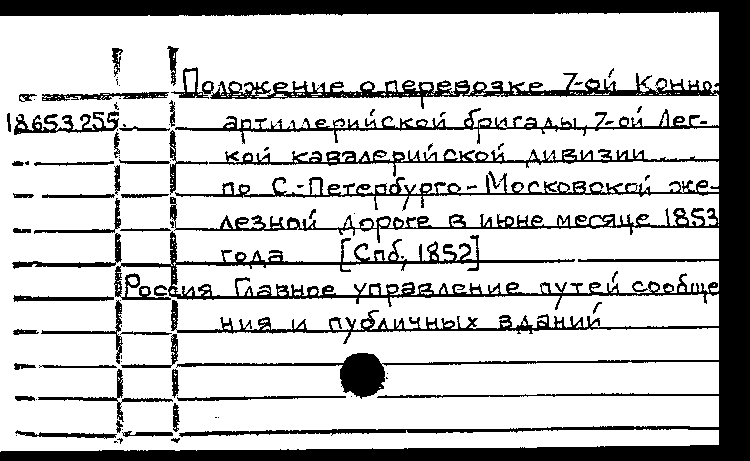 Положение о перевозке 7-ой Конно-
18653255. артиллерийской бригады, 7-ой Лег-
кой кавалерийской дивизии ...
по С.-Петербурго-Московской же-
лезной дороге в июне месяце 1853
года [Спб, 1852]
Россия. Главное управление путей сообще
ния и публичных зданий